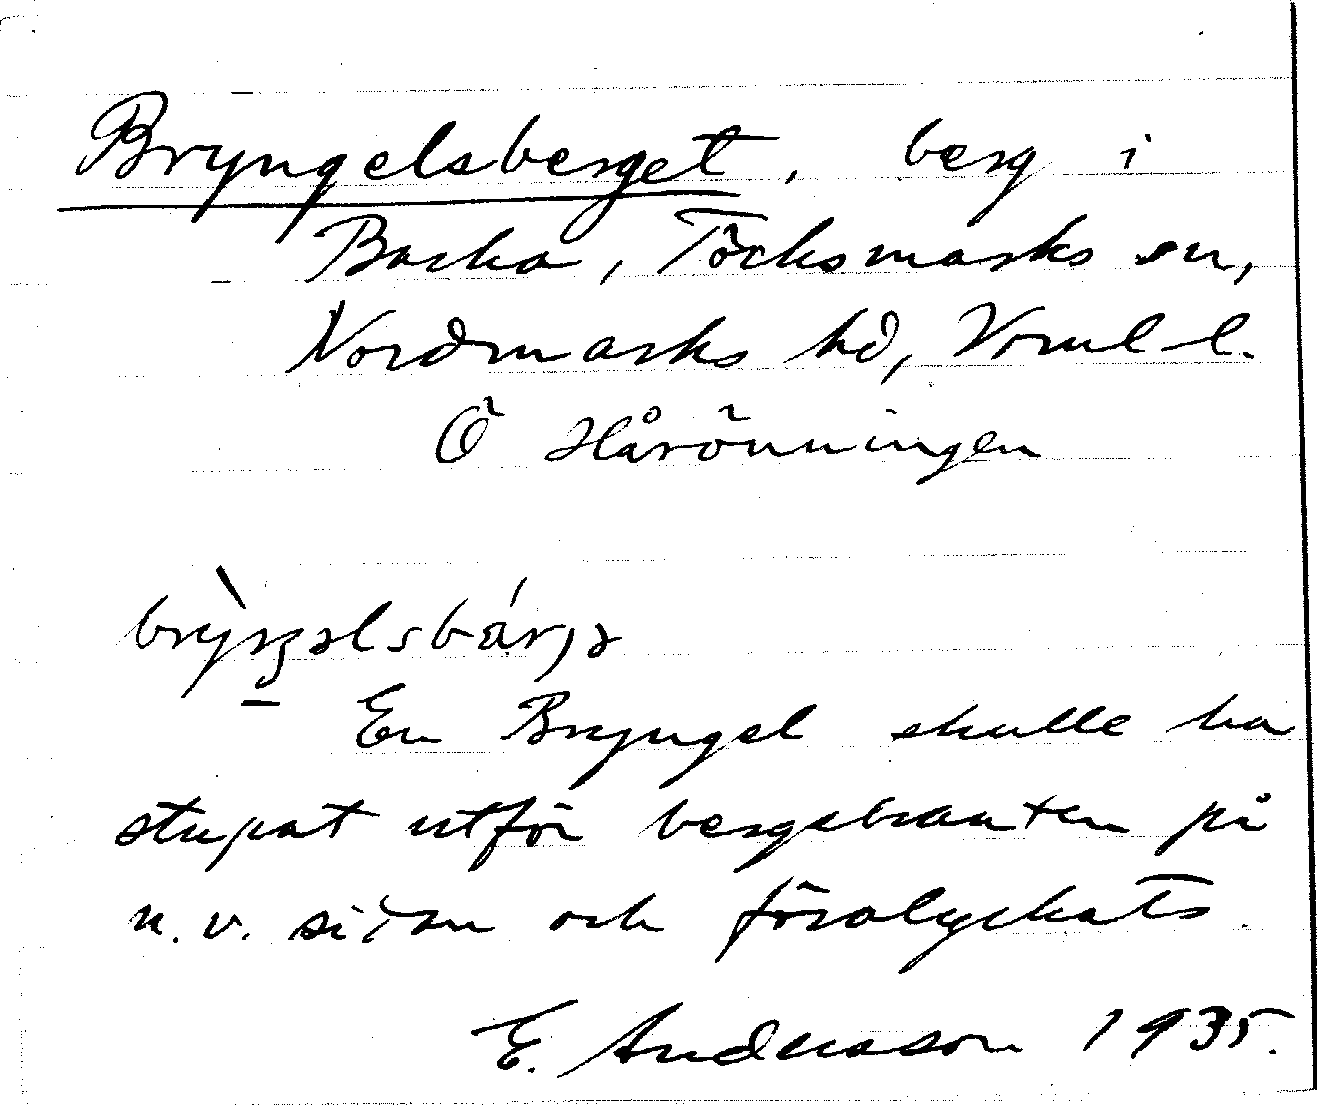 Bryngelsberget, berg i
Backa, Töcksmarks sn,
Nordmarks hd, Vrml l.
Ö Hårönningen
En Bryngel skulle ha
stupat utför bergsbranten på
n.v. sidan och förolyckats.
E. Andersson 1935.